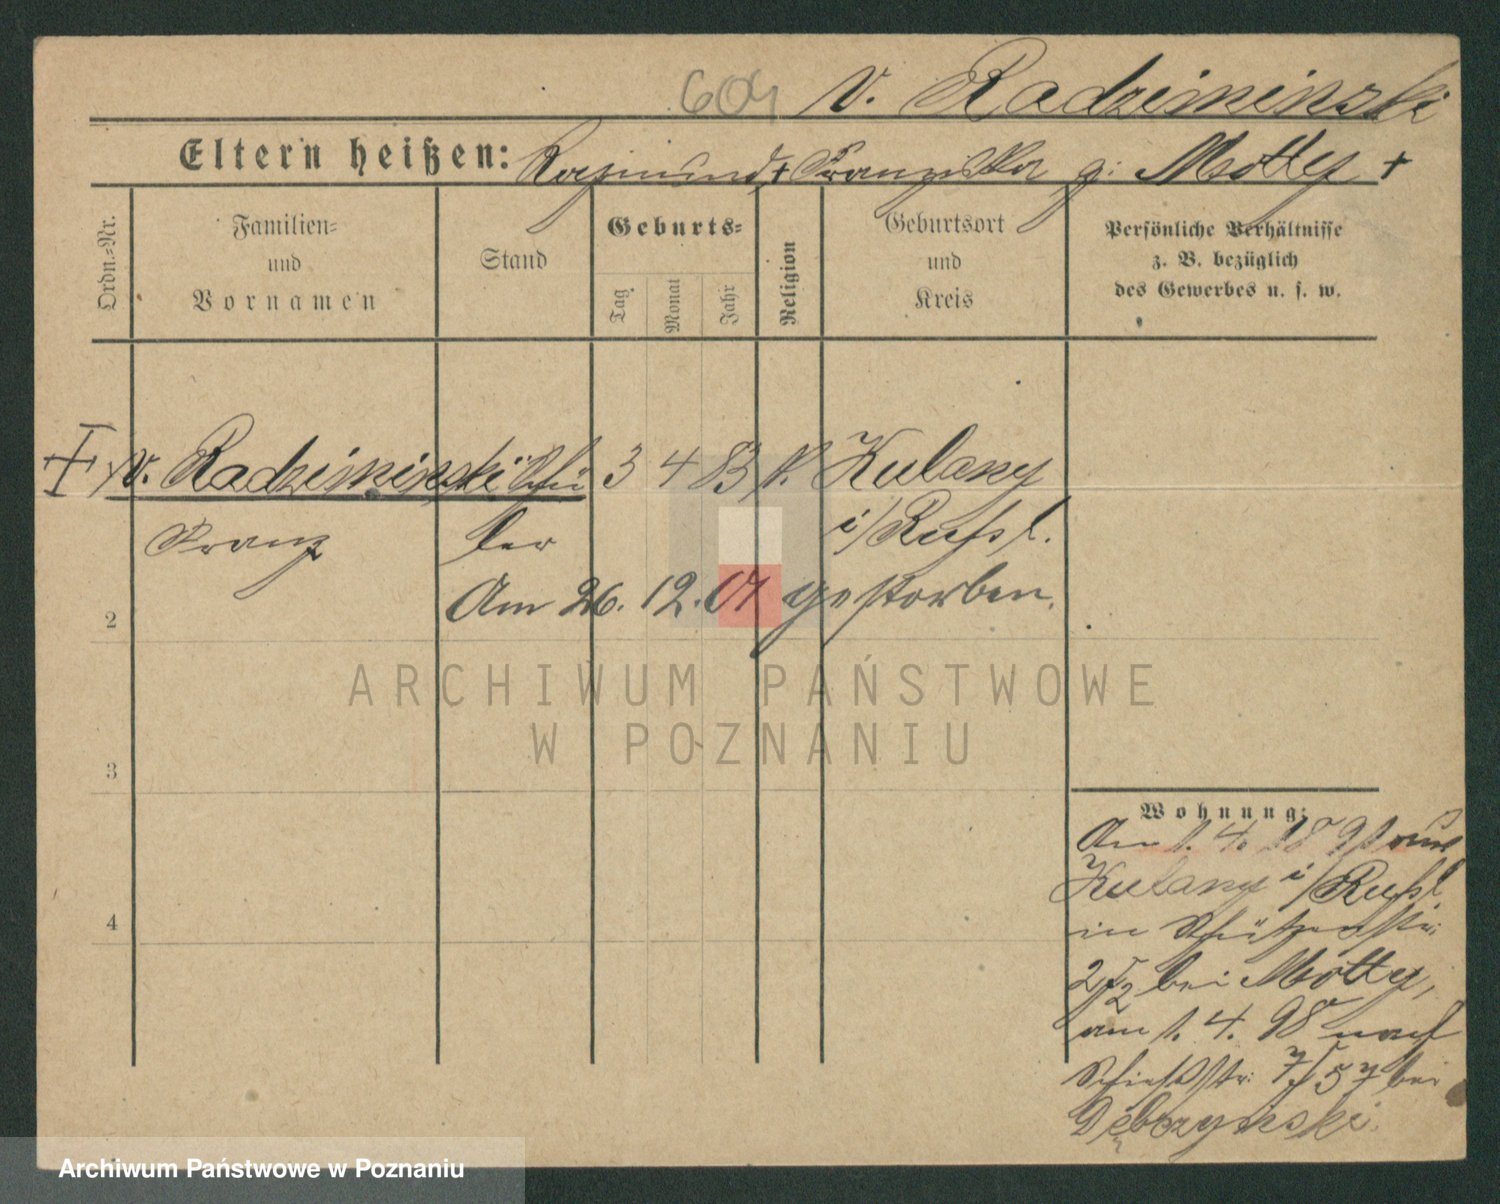 604 v. Radziminski
Eltern heißen: Raymund + Franziska g: Motty +
Ordn.-Nr.
Familien-
und
Vornamen
Stand
Geburts-
Tag
Monat
Jahr
Religion
Geburtsort
und
Kreis
Persönliche Verhältnisse
z. B. bezüglich
des Gewerbes u. s. w.
v. Radziminski Schü 3 4 83 k. Kulany
Franz ler i/Russl.
Am 26. 12. 01 gestorben.
2
ARCHIWUM PAŃSTWOWE
W POZNANIU
3
4
Wohnung:
Am 1. 4. 1891 aus
Kulany i/Russl.
in Schützenstr:
bei Motty,
am 1. 4. 98 nach
7/57 bei
Dębczynski.
Archiwum Państwowe w Poznaniu